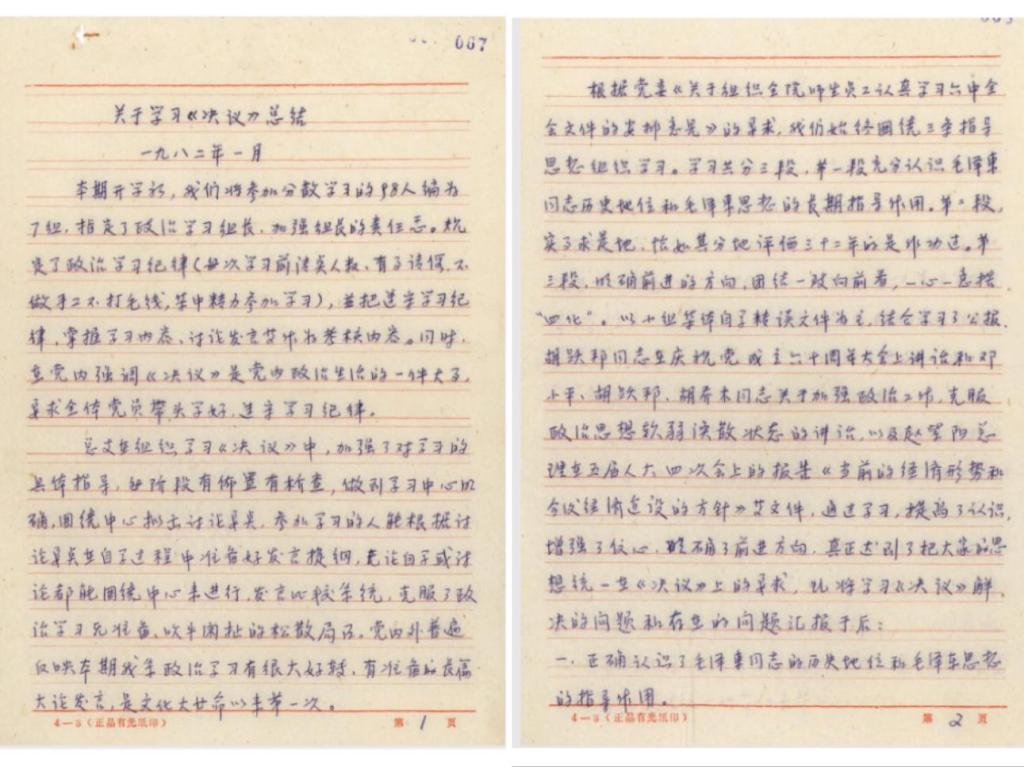 067
关于学习《决议》总结
一九八二年一月
本期开学初，我们将参加分散学习的98人编为
7组，指定了政治学习组长，加强组长的责任感。规
定了政治学习纪律（每次学习前清点人数、有事请假、不
做手工不打毛线，集中精力参加学习），并把遵守学习纪
律，掌握学习内容、讨论发言等作为考核内容。同时，
在党内强调《决议》是党内政治生活的一件大事，
要求全体党员带头学好，遵守学习纪律。
总支在组织学习《决议》中，加强了对学习的
具体指导，每阶段有佈置有检查，做到学习中心明
确，围绕中心拟出讨论要点，参加学习的人能根据讨
论要点在自学过程中准备好发言提纲，无论自学或讨
论都能围绕中心来进行，发言比较系统，克服了政
治学习无准备、吹牛闲扯的松散局面。党内外普遍
反映本期我系政治学习有很大好转，有准备的长篇
大论发言，是文化大革命以来第一次。
4—3（正品有光纸印）
第 1 页
根据党委《关于组织全院师生员工认真学习六中全
会文件的安排意见》的要求，我们始终围绕三条指导
思想组织学习。学习共分三段，第一段充分认识毛泽东
同志历史地位和毛泽东思想的长期指导作用。第二段，
实事求是地，恰如其分地评价三十二年的是非功过。第
三段，明确前进的方向，团结一致向前看，一心一意搞
“四化”。以小组集体自学精读文件为主，结合学习了公报、
胡跃邦同志在庆祝党成立六十周年大会上讲话和邓
小平、胡跃邦、胡乔木同志关于加强政治工作，克服
政治思想软弱涣散状态的讲话，以及赵紫阳总
理在五届人大四次会上的报告《当前的经济形势和
今后经济建设的方针》等文件，通过学习，提高了认识，
增强了信心，明确了前进方向，真正达到了把大家的思
想统一在《决议》上的要求，现将学习《决议》解
决的问题和存在的问题汇报于后：
一、正确认识了毛泽东同志的历史地位和毛泽东思想
的指导作用。
4—3（正品有光纸印）
第 2 页